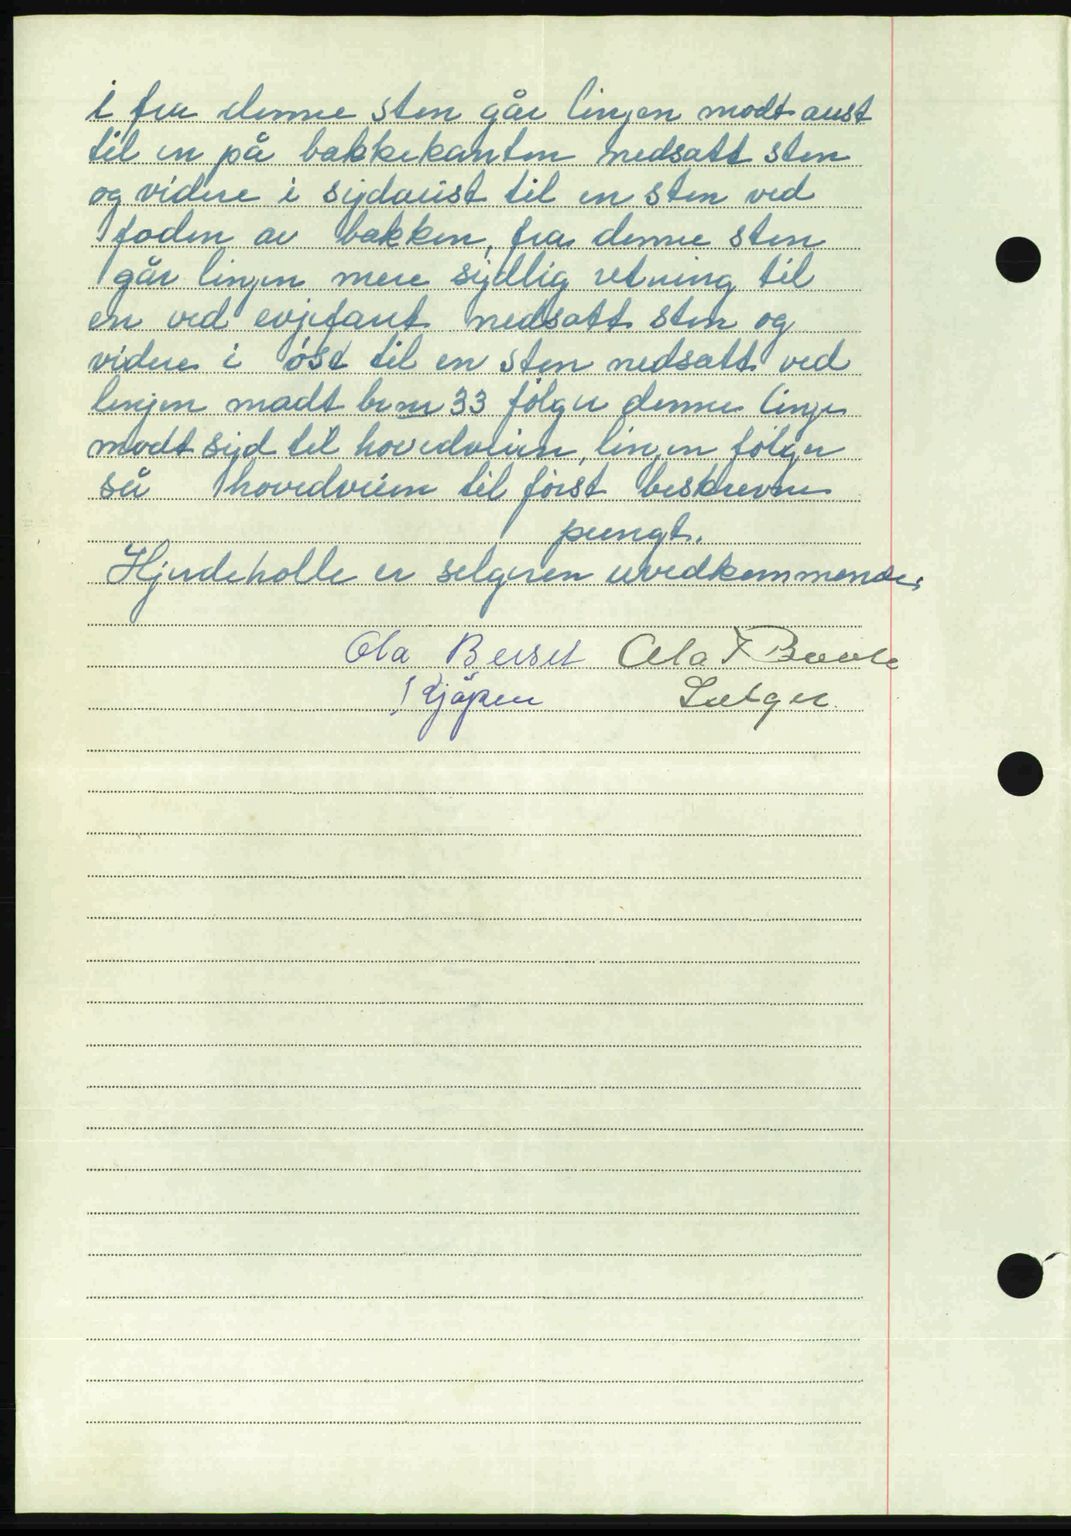 i fra denne sten går linjen modt aust
til en på bakkekanten nedsatt sten
og videre i sydaust til en sten ved
foden av bakken, fra denne sten
går linjen mere sydlig retning til
en ved evjefaut nedsatt sten og
videre i øst til en sten nedsatt ved
linjen madt br nr 33 følger denne linje
modt syd til hovedveien, linjen følger
så hovedveien til først beskrevne
pungt.
Hjudeholle er selgeren uvedkommende.
Ola Berset Ola F
Kjøper Sælger